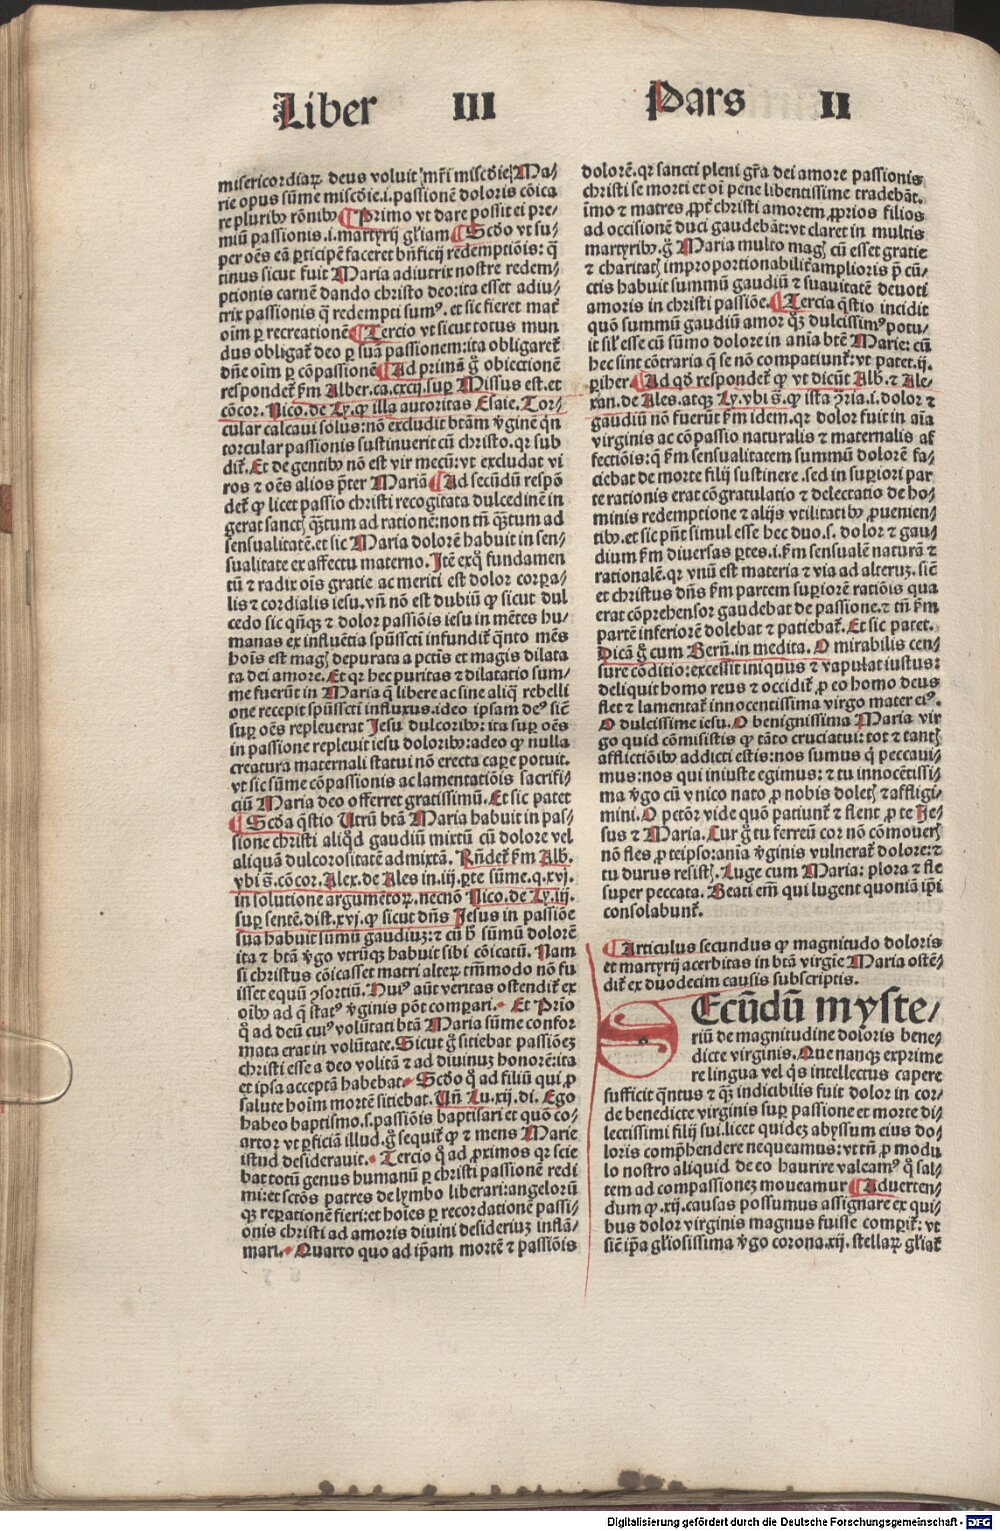 Liber III Pars II
misericordiaꝝ deus voluit mr̄i miſcd̄ie Ma-
rie opus sūme miſcd̄ie.i.passionē doloris cōica
re pluribꝰ rōnibꝰ Primo vt dare possit ei pre-
miū passionis.i.martyrij gl̄iam Scd̄o vt su-
per oēs eā ꝑticipē faceret bn̄ficij redēptiōis: q̄
tinus sicut fuit Maria adiutrix nostre redem-
ptionis carnē dando christo deo: ita esset adiu-
trix passionis q̄ redempti sumꝰ. et sic fieret mat̄
oīm ꝑ recreationē Tercio vt sicut totus mun
dus obligat̄ deo ꝑ suā passionem: ita obligaret̄
dn̄e oīm ꝑ cōpassionē Ad primā g̊ obiectionē
respondet̄ ẜm Alber.ca.cxcij.suꝑ Missus est.et
cōcor. Nico.de Ly.ꝙ illa autoritas Esaie. Tor-
cular calcaui solus: nō excludit btām v̄ginē qn̄
torcular passionis sustinuerit cū christo. qꝛ sub
dit̄. Et de gentibꝰ nō est vir mecū: vt excludat vi
ros ⁊ oēs alios p̄ter Mariā Ad secūdū respō
det̄ ꝙ licet passio christi recogitata dulcedinē in
gerat sanctꝭ q̄ꝫtum ad rationē: non tn̄ q̄ꝫtum ad
sensualitatē. et sic Maria dolorē habuit in sen-
sualitate ex affectu materno. Itē exq̊ fundamen
tū ⁊ radix oīs gratie ac meriti est dolor corꝑa-
lis ⁊ cordialis iesu. vn̄ nō est dubiū ꝙ sicut dul
cedo sic qn̄qꝫ ⁊ dolor passiōis iesu in mētes hu-
manas ex influētia spūssctī infundit̄ q̄nto mēs
hoīs est magꝭ depurata a pctīs et magis dilata
ta dei amore. Et qꝛ hec puritas ⁊ dilatatio sum-
me fuerūt in Maria q̄ libere ac sine aliq̄ rebelli
one recepit spūssctī influxus. ideo ipsam deꝰ sic̄
suꝑ oēs repleuerat Iesu dulcoribꝰ: ita suꝑ oēs
in passione repleuit iesu doloribꝰ: adeo ꝙ nulla
creatura maternali statui nō erecta caꝑe potuit.
vt sic sūme cōpassionis ac lamentatiōis sacrifi-
ciū Maria deo offerret gratissimū. Et sic patet
Scd̄a q̄stio Utrū btā Maria habuit in pas-
sione christi aliq̊d gaudiū mixtū cū dolore vel
aliquā dulcorositatē admixtā. Rn̄det̄ ẜm Alb.
vbi s̄. cōcor. Alex.de Ales in.iij.ꝑte sūme.q.xvj.
in solutione argumētoꝝ. necnō Nico.de Ly.iij.
suꝑ sentē.dist.xvj.ꝙ sicut dn̄s Jesus in passiōe
sua habuit sūmū gaudiuꝫ: ⁊ cū h̄ sūmū dolorē
ita ⁊ btā v̄go vtrūqꝫ habuit sibi cōicatū. Nam
si christus cōicasset matri alteꝝ tm̄modo nō fu
isset equū ꝯsortiū. Huiꝰ aūt veritas ostendit̄ ex
oībꝰ ad q̄ statꝰ v̄ginis pōt comꝑari. Et Prīo
q̊ ad deū cuiꝰ volūtati btā Maria sūme confor
mata erat in volūtate. Sicut g̊ sitiebat passiōeꝫ
christi esse a deo volitā ⁊ ad diuinuꝫ honorē: ita
et ipsa acceptā habebat. Scd̄o q̊ ad filiū qui ꝓ
salute hoīm mortē sitiebat. Un̄ Lu.xij.di. Ego
habeo baptismo.s.passiōis baptisari et quō co-
artor vt ꝑficiā illud. g̊ sequit̄ ꝙ ⁊ mens Marie
istud desiderauit. Tercio q̊ ad ꝓximos qꝛ scie
bat totū genus humanū ꝑ christi passionē redi
mi: et sctōs patres de lymbo liberari: angeloꝝ
qꝫ reꝑationē fieri: et hoīes ꝑ recordationē passi-
onis christi ad amoris diuini desideriuꝫ inflā-
mari. Quarto quo ad ip̄am mortē ⁊ passiōis
dolorē. qꝛ sancti pleni gr̄a dei amore passionis
christi se morti et oī pene libentissime tradebāt.
īmo ⁊ matres ꝓpt̄ christi amorem ꝓprios filios
ad occisionē duci gaudebāt: vt claret in multis
martyribꝰ. g̊ Maria multo magꝭ cū esset gratie
⁊ charitatꝭ improportionabilit̄ amplioris p̄ cū-
ctis habuit summū gaudiū ⁊ suauitatē deuoti
amoris in christi passiōe. Tercia q̄stio incidit
quō summū gaudiū amor q̄ꝫ dulcissimꝰ potu-
it sil̄ esse cū sūmo dolore in aīa btē Marie: cū
hec sint cōtraria q̄ se nō compatiunt̄: vt patet.ij.
ꝑiher. Ad qd̄ respondet̄ ꝙ vt dicūt Alb. ⁊ Ale-
xan.de Ales.atqꝫ Ly.vbi s̄. ꝙ ista ꝯ̄ria.i.dolor ⁊
gaudiū nō fuerūt ẜm idem. qꝛ dolor fuit in aīa
virginis ac cōpassio naturalis ⁊ maternalis af
fectiōis: q̄ ẜm sensualitatem summū dolorē fa-
ciebat de morte filij sustinere. sed in suꝑiori par
te rationis erat cōgratulatio ⁊ delectatio de ho-
minis redemptione ⁊ alijs vtilitatibꝰ ꝓuenien-
tibꝰ. et sic pn̄t simul esse hec duo.s.dolor ⁊ gau-
dium ẜm diuersas ꝑtes.i.ẜm sensualē naturā ⁊
rationalē. qꝛ vnū est materia ⁊ via ad alteruꝫ. sic̄
et christus dn̄s ẜm partem suꝑiorē ratiōis qua
erat cōprehensor gaudebat de passione. ⁊ tn̄ ẜm
partē inferiorē dolebat ⁊ patiebat̄. Et sic patet.
Dicā g̊ cum Bern̄.in medita. O mirabilis cen-
sure cōditio: excessit iniquus ⁊ vapulat iustus:
deliquit homo reus ⁊ occidit̄ ꝓ eo homo deus
flet ⁊ lamentat̄ innocentissima virgo mater eiꝰ.
O dulcissime iesu. O benignissima Maria vir
go quid cōmisistis ꝙ tāto cruciatui: tot ⁊ tantꝭ
afflictiōibꝰ addicti estis: nos sumus q̇ peccaui-
mus: nos qui iniuste egimus: ⁊ tu innocētissi-
ma v̄go cū vnico nato ꝓ nobis doletꝭ ⁊ affligi-
mini. O petōr vide quō patiunt̄ ⁊ flent ꝓ te Je-
sus ⁊ Maria. Cur g̊ tu ferreū cor nō cōmoueꝭ
nō fles ꝓ teipso: anīa v̄ginis vulnerat̄ dolore: ⁊
tu durus resistꝭ. Luge cum Maria: plora ⁊ fle
super peccata. Beati em̄ qui lugent quoniā ip̄i
consolabunt̄.
Articulus secundus ꝙ magnitudo doloris
et martyrij acerbitas in btā virgīe Maria ostē-
dit̄ ex duodecim causis subscriptis.
SEcūdū myste-
riū de magnitudine doloris bene-
dicte virginis. Que nanqꝫ exprime
re lingua vel q̇s intellectus capere
sufficit q̄ntus ⁊ q̄ꝫ indicibilis fuit dolor in cor-
de benedicte virginis suꝑ passione et morte di-
lectissimi filij sui. licet quidez abyssum eius do-
loris comp̄hendere nequeamus: vt tn̄ ꝓ modu
lo nostro aliquid de eo haurire valeamꝰ q̊ sal-
tem ad compassionez moueamur Aduerten-
dum ꝙ.xij.causas possumus assignare ex qui-
bus dolor virginis magnus fuisse comꝑit̄: vt
sic̄ ip̄a gl̄iosissima v̄go corona.xij.stellaꝝ gl̄iat̄
Digitalisierung gefördert durch die Deutsche Forschungsgemeinschaft - DFG